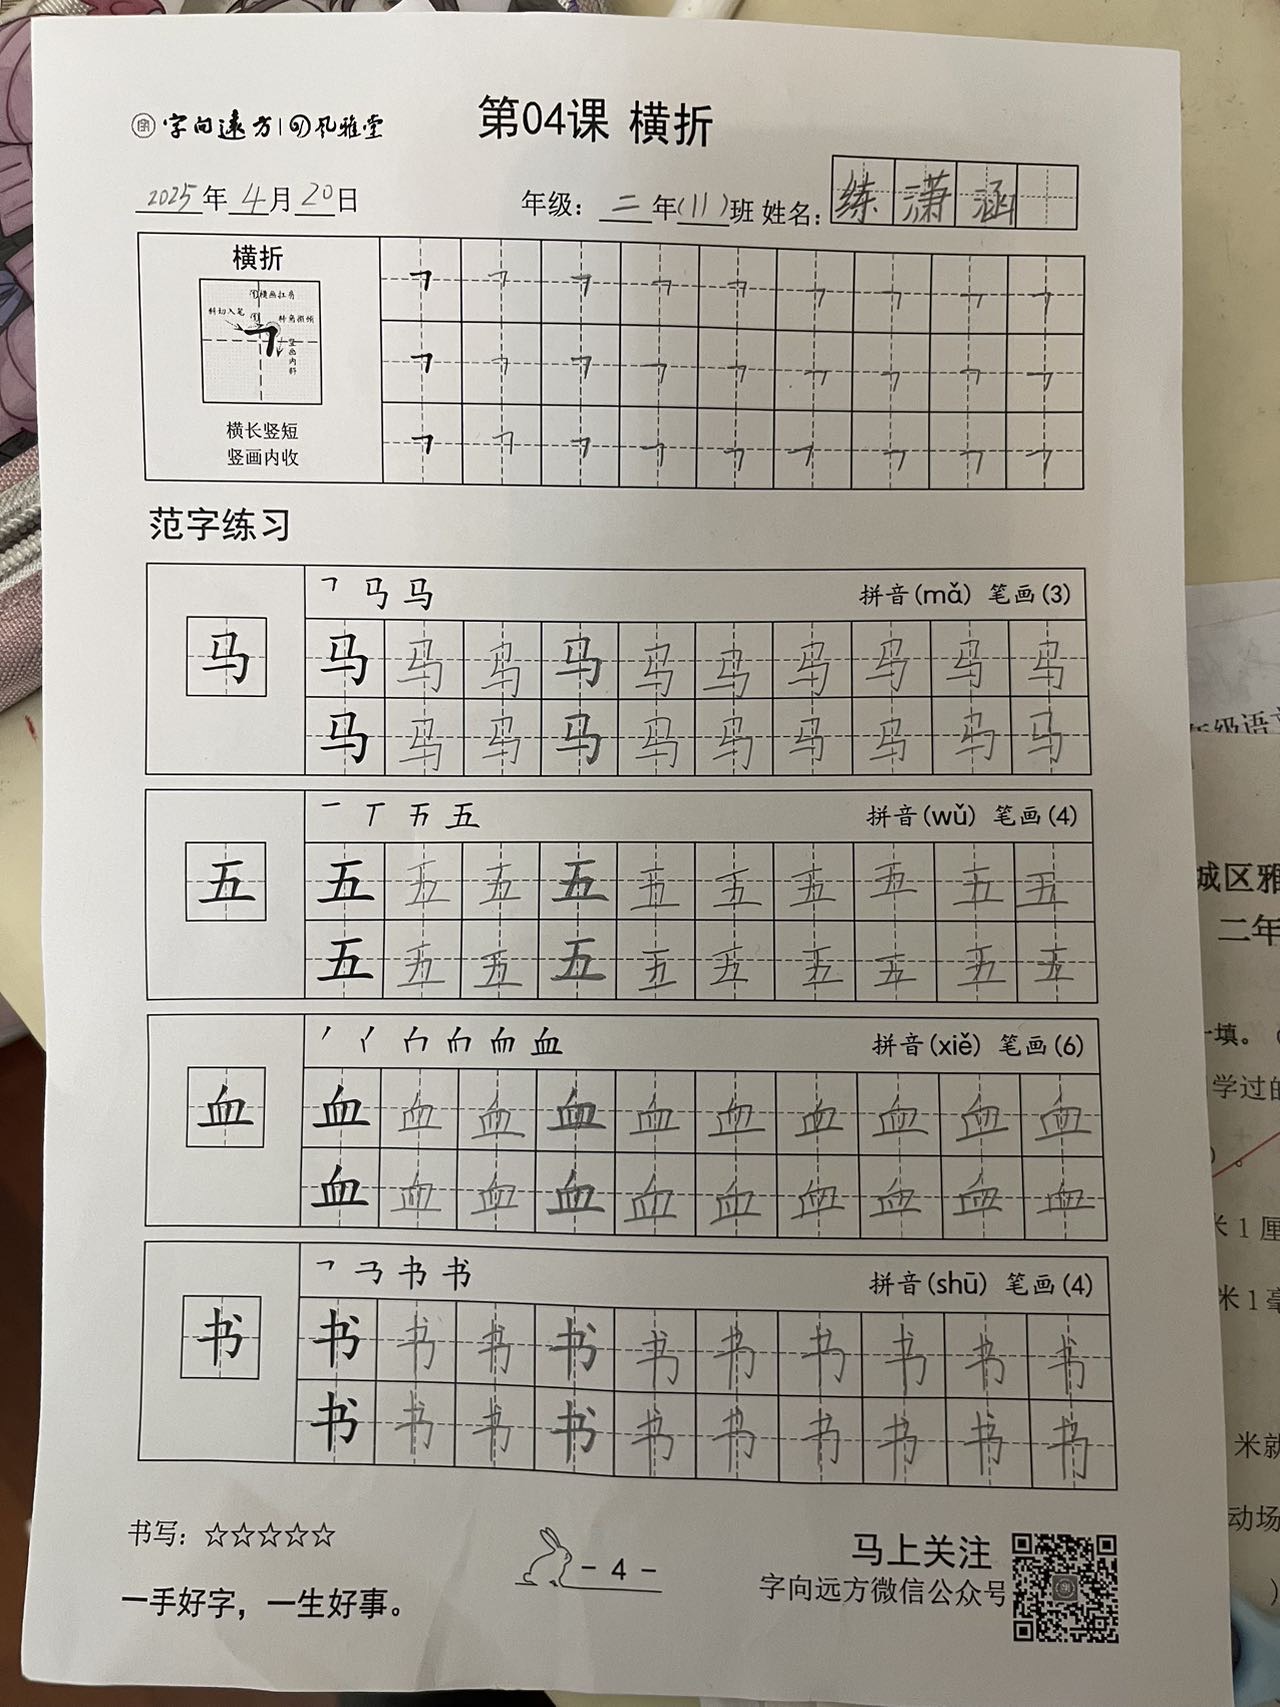 字向遠方 | 风雅堂
第04课 横折
2025年4月20日 年级：二年(11)班 姓名：练潇涵
横折
横画扛肩
斜切入笔 斜角微顿
竖画内斜
横长竖短
竖画内收
范字练习
㇕ 马 马 拼音(mǎ) 笔画(3)
马 马 马 马 马 马 马 马 马 马 马
马 马 马 马 马 马 马 马 马 马
一 丅 五 拼音(wǔ) 笔画(4)
五 五 五 五 五 五 五 五 五 五 五
五 五 五 五 五 五 五 五 五 五
血 拼音(xiě) 笔画(6)
血 血 血 血 血 血 血 血 血 血 血
血 血 血 血 血 血 血 血 血 血
㇕ 书 书 拼音(shū) 笔画(4)
书 书 书 书 书 书 书 书 书 书 书
书 书 书 书 书 书 书 书 书 书
书写：☆☆☆☆☆
- 4 -
马上关注
一手好字，一生好事。
字向远方微信公众号
年级语
城区雅
二年
一填。
学过的
米1厘
米1毫
米就
动场